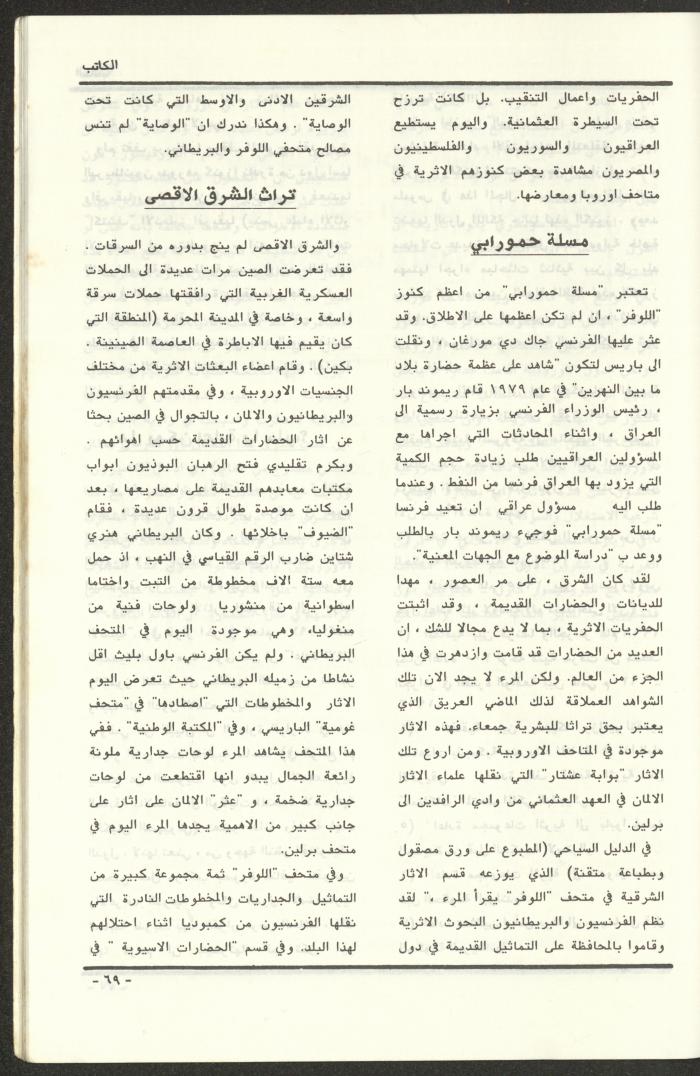 الكاتب
الحفريات واعمال التنقيب. بل كانت ترزح
تحت السيطرة العثمانية. واليوم يستطيع
العراقيون والسوريون والفلسطينيون
والمصريون مشاهدة بعض كنوزهم الاثرية في
متاحف اوروبا ومعارضها.
مسلة حمورابي
تعتبر "مسلة حمورابي" من اعظم كنوز
"اللوفر" ، ان لم تكن اعظمها على الاطلاق. وقد
عثر عليها الفرنسي جاك دي مورغان ، ونقلت
الى باريس لتكون "شاهد على عظمة حضارة بلاد
ما بين النهرين" في عام ١٩٧٩ قام ريموند بار
، رئيس الوزراء الفرنسي بزيارة رسمية الى
العراق ، واثناء المحادثات التي اجراها مع
المسؤولين العراقيين طلب زيادة حجم الكمية
التي يزود بها العراق فرنسا من النفط . وعندما
طلب اليه مسؤول عراقي ان تعيد فرنسا
"مسلة حمورابي" فوجيء ريموند بار بالطلب
ووعد ب "دراسة الموضوع مع الجهات المعنية".
لقد كان الشرق ، على مر العصور ، مهدا
للديانات والحضارات القديمة ، وقد اثبتت
الحفريات الاثرية ، بما لا يدع مجالا للشك ، ان
العديد من الحضارات قد قامت وازدهرت في هذا
الجزء من العالم. ولكن المرء لا يجد الان تلك
الشواهد العملاقة لذلك الماضي العريق الذي
يعتبر بحق تراثا للبشرية جمعاء. فهذه الاثار
موجودة في المتاحف الاوروبية . ومن اروع تلك
الاثار "بوابة عشتار" التي نقلها علماء الاثار
الالمان في العهد العثماني من وادي الرافدين الى
برلين.
في الدليل السياحي (المطبوع على ورق مصقول
وبطباعة متقنة) الذي يوزعه قسم الاثار
الشرقية في متحف "اللوفر" يقرأ المرء ،" لقد
نظم الفرنسيون والبريطانيون البحوث الاثرية
وقاموا بالمحافظة على التماثيل القديمة في دول
الشرقين الادنى والاوسط التي كانت تحت
الوصاية" . وهكذا ندرك ان "الوصاية" لم تنس
مصالح متحفي اللوفر والبريطاني.
تراث الشرق الاقصى
والشرق الاقصى لم ينج بدوره من السرقات .
فقد تعرضت الصين مرات عديدة الى الحملات
العسكرية الغربية التي رافقتها حملات سرقة
واسعة ، وخاصة في المدينة المحرمة (المنطقة التي
كان يقيم فيها الاباطرة في العاصمة الصينينة .
بكين) . وقام اعضاء البعثات الاثرية من مختلف
الجنسيات الاوروبية ، وفي مقدمتهم الفرنسيون
والبريطانيون والالمان ، بالتجوال في الصين بحثا
عن اثار الحضارات القديمة حسب اهوائهم .
وبكرم تقليدي فتح الرهبان البوذيون ابواب
مكتبات معابدهم القديمة على مصاريعها ، بعد
ان كانت موصدة طوال قرون عديدة ، فقام
"الضيوف" باخلائها . وكان البريطاني هنري
شتاين ضارب الرقم القياسي في النهب ، اذ حمل
معه ستة الاف مخطوطة من التبت واختاما
اسطوانية من منشوريا ولوحات فنية من
منغوليا، وهي موجودة اليوم في المتحف
البريطاني . ولم يكن الفرنسي باول بليث اقل
نشاطا من زميله البريطاني حيث تعرض اليوم
الاثار والمخطوطات التي "اصطادها" في "متحف
غومية" الباريسي ، وفي "المكتبة الوطنية" . ففي
هذا المتحف يشاهد المرء لوحات جدارية ملونة
رائعة الجمال يبدو انها اقتطعت من لوحات
جدارية ضخمة ، و "عثر" الالمان على اثار على
جانب كبير من الاهمية يجدها المرء اليوم في
متحف برلين.
وفي متحف "اللوفر" ثمة مجموعة كبيرة من
التماثيل والجداريات والمخطوطات النادرة التي
نقلها الفرنسيون من كمبوديا اثناء احتلالهم
لهذا البلد. وفي قسم "الحضارات الاسيوية " في
- ٦٩ -